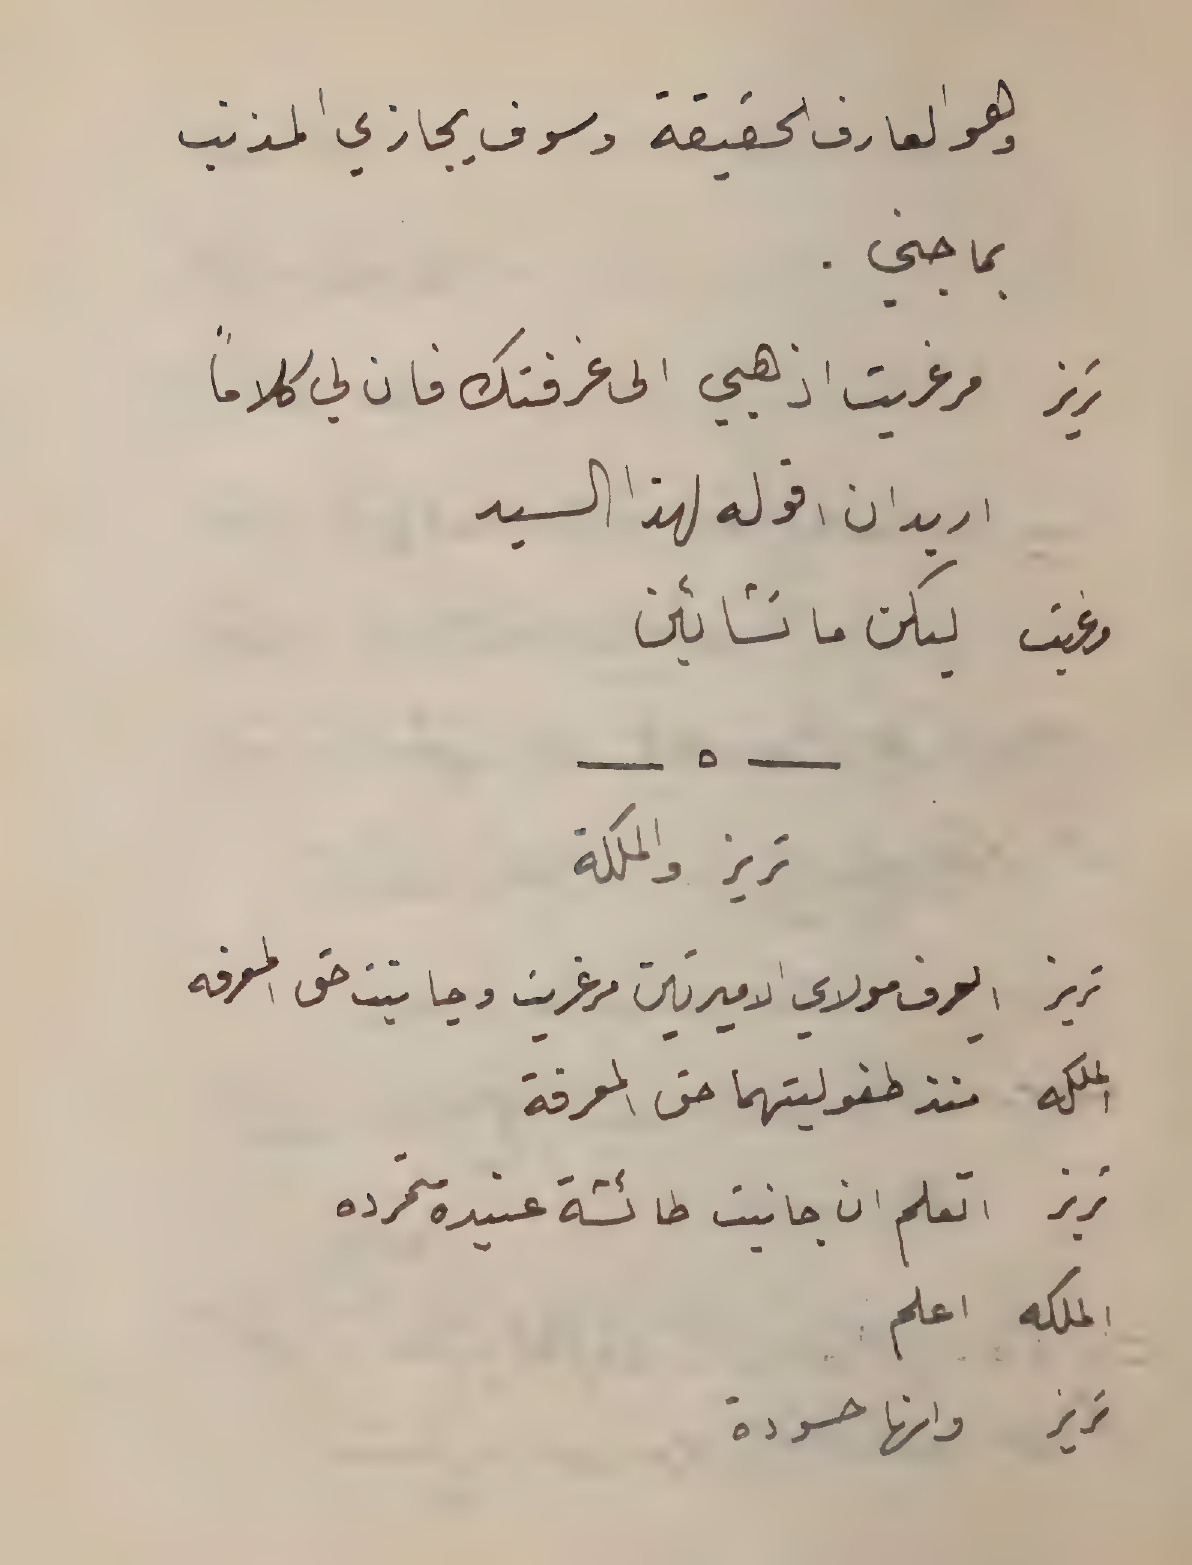 وهو العارف الحقيقة وسوف يجازي المذنب
بما جني .
تريز مرغريت اذهبي الى غرفتك فان لي كلاماً
اريد ان اقوله لهذا السيد
مرغريت ليكن ما تشائين
— ٥ —
تريز والملكة
تريز ايعرف مولاي الاميرتين مرغريت وجانيت حق المعرفه
الملكه منذ طفوليتهما حق المعرفة
تريز اتعلم ان جانيت طائشة عنيدة متمرده
الملكه اعلم
تريز وانها حسودة